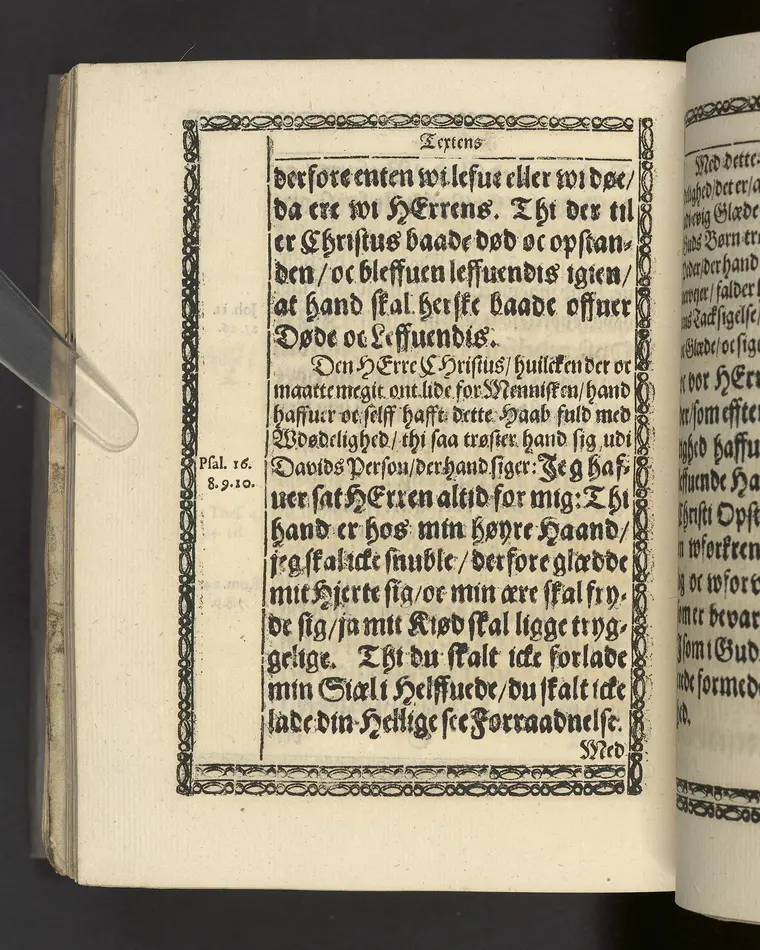 Textens
derfore enten wi lefue eller wi døe/
da ere wi HErrens. Thi der til
er Christus baade død oc opstan-
den/oc bleffuen leffuendis igien/
at hand skal herske baade offuer
Døde oc Leffuendis.
Den HErre CHristus/huilcken der oc
maatte megit ont lide for Mennisken/hand
haffuer oc selff hafft dette Haab fuld med
Wdødelighed/thi saa trøster hand sig udi
Psal. 16.
8.9.10.
Davids Person/der hand siger: Jeg haf-
uer sat HErren altid for mig: Thi
hand er hos min høyre Haand/
jeg skal icke snuble/derfore glædde
mit Hjerte sig/oc min ære skal fry-
de sig/ja mit Kiød skal ligge tryg-
gelige. Thi du skalt icke forlade
min Siæl i Helffuede/du skalt icke
lade din Hellige see Forraadnelse.
Med
Med dette
Glæde
Guds Børn
falder
Tacksigelse/
Glæde/oc sig
vor HErr
som effter
haffu
Christi Opst
oc wforv
er bevar
som i Gud
formed